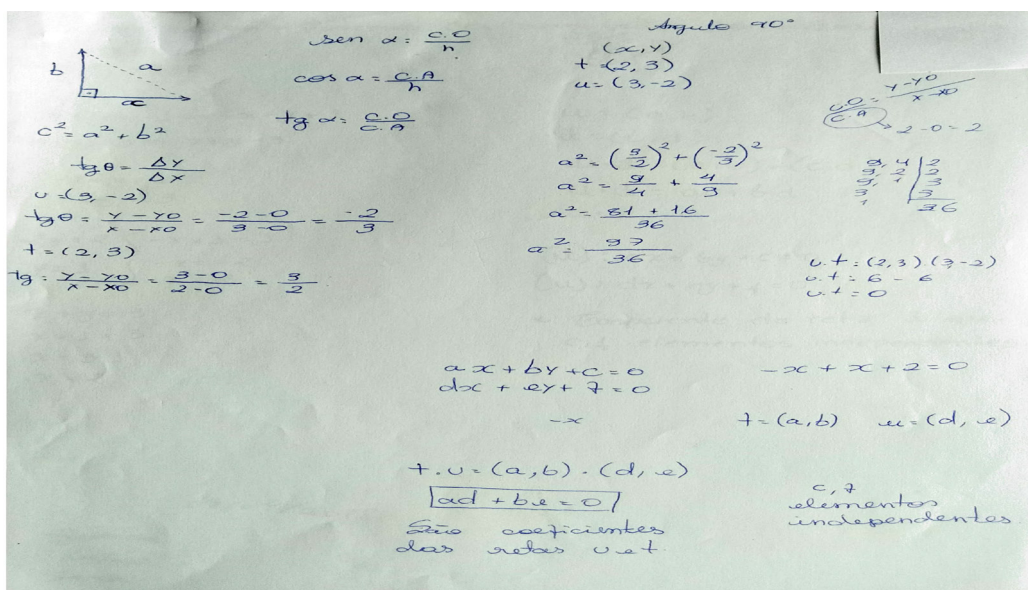 b a
x
c² = a² + b²
tg θ = ΔY / ΔX
u = (3, -2)
tg θ = Y - Y0 / X - X0 = -2 - 0 / 3 - 0 = -2 / 3
t = (2, 3)
tg = Y - Y0 / X - X0 = 3 - 0 / 2 - 0 = 3 / 2
sen α = C.O / h
cos α = C.A / h
tg α = C.O / C.A
Angulo 90°
(x, y)
t = (2, 3)
u = (3, -2)
C.O / C.A = Y - Y0 / X - X0
2 - 0 = 2
a² = (3/2)² + (-2/3)²
a² = 9/4 + 4/9
a² = 81 + 16 / 36
a² = 97 / 36
9, 4 | 2
9, 2 | 2
9, 1 | 3
3, | 3
1 36
u.t = (2, 3).(3, -2)
u.t = 6 - 6
u.t = 0
ax + by + c = 0
dx + ey + 7 = 0
-x
-x + x + 2 = 0
t = (a, b) u = (d, e)
t.u = (a, b) . (d, e)
ad + be = 0
São coeficientes
das retas u e t.
c, 7
elementos
independentes